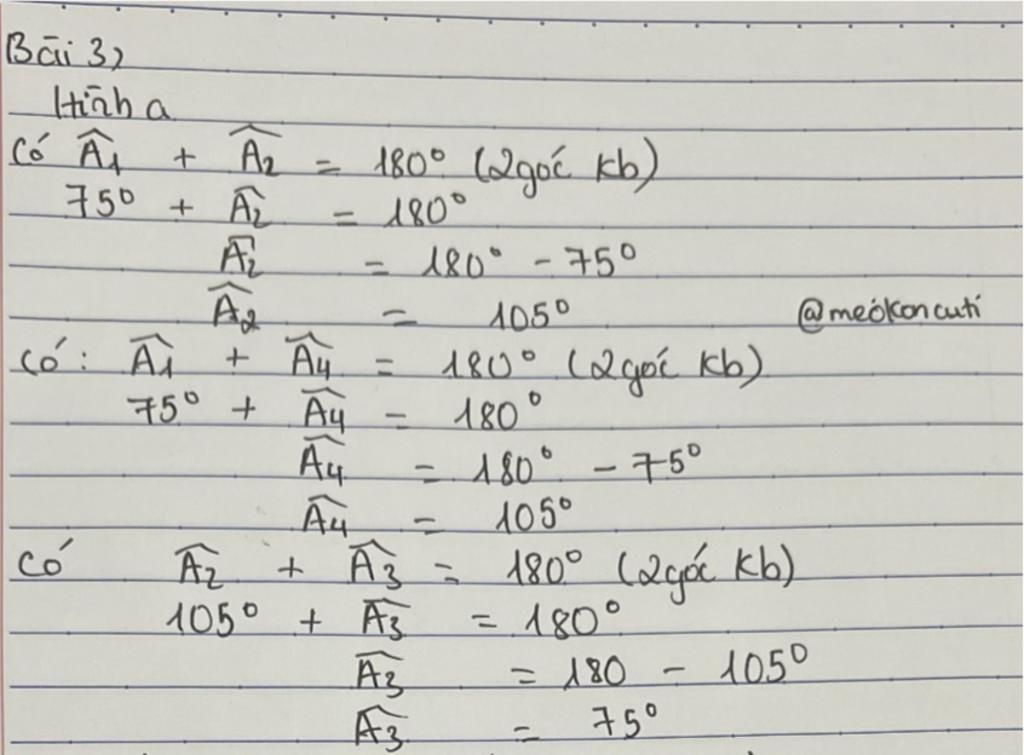 Bài 3)
Hình a
Có Â₁ + Â₂ = 180° (2góc kb)
75° + Â₂ = 180°
Â₂ = 180° - 75°
Â₂ = 105°
@meókoncuti
Có: Â₁ + Â₄ = 180° (2góc kb)
75° + Â₄ = 180°
Â₄ = 180° - 75°
Â₄ = 105°
Có Â₂ + Â₃ = 180° (2góc kb)
105° + Â₃ = 180°
Â₃ = 180 - 105°
Â₃ = 75°